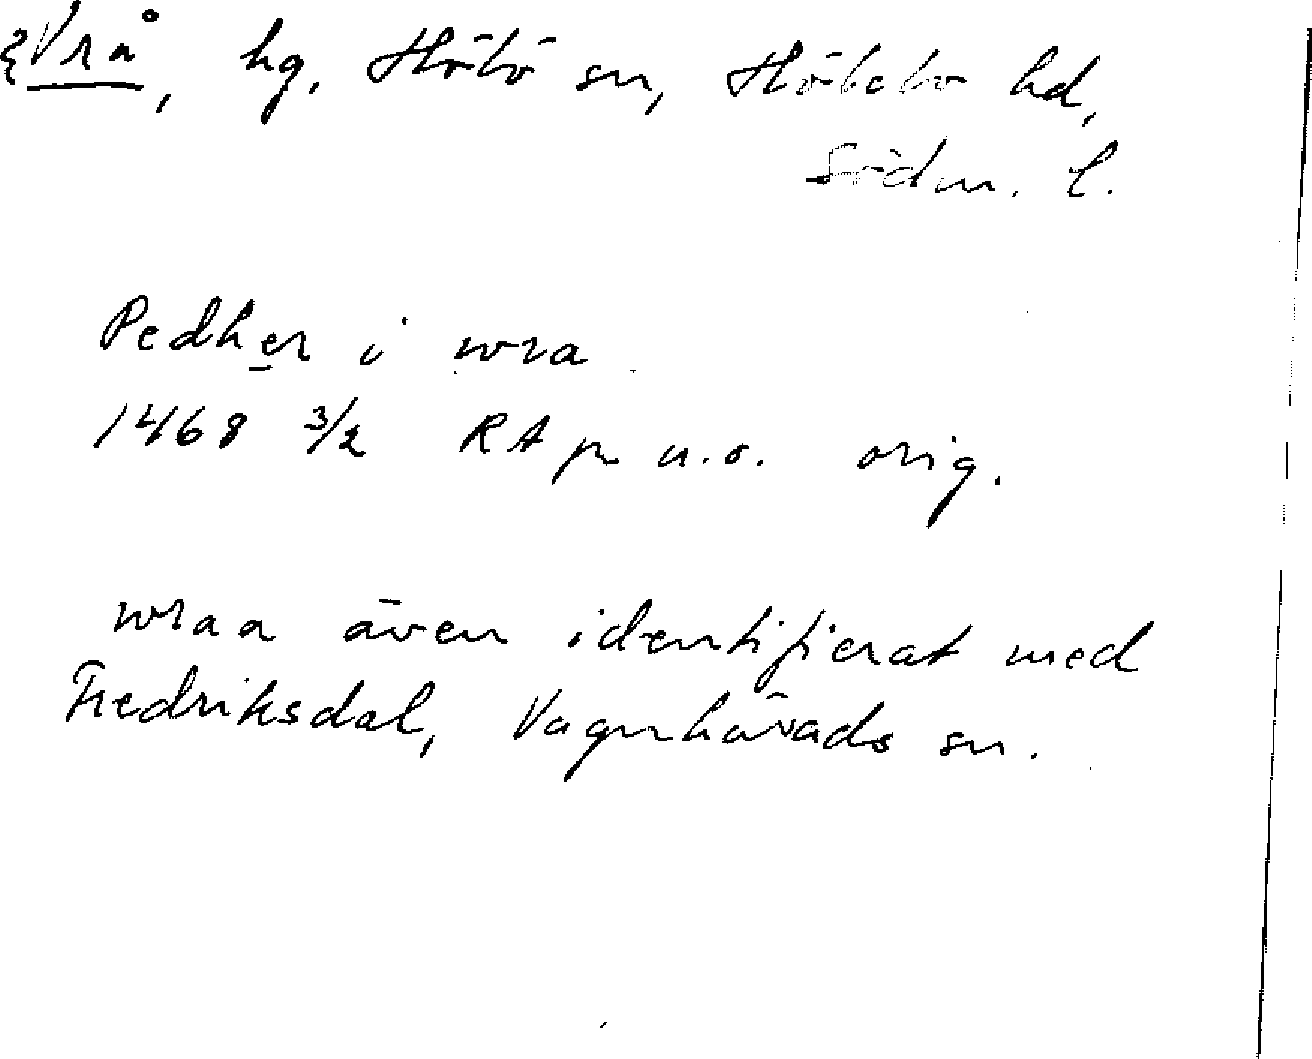 Vrå, hg, Hölö sn, Hölebo hd,
Södm. l.
Pedher i wra
1468 3/2 RA p u.o. orig.
wraa även identifierat med
Fredriksdal, Vagnhärads sn.